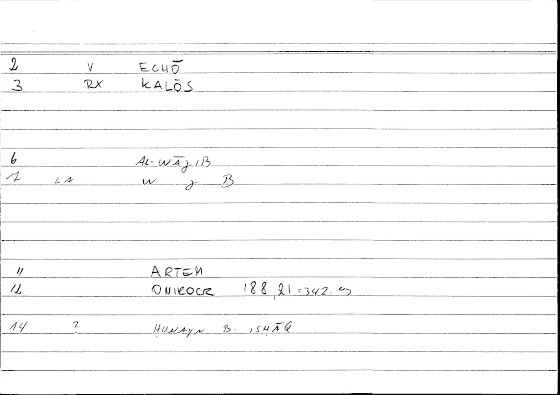 2 V ECHŌ
3 RX KALŌS
6 AL-WĀJIB
7 LA W J B
11 ARTEM
12 ONIROCR 188,21-342.
14 ? ḤUNAYN B. ISḤĀQ